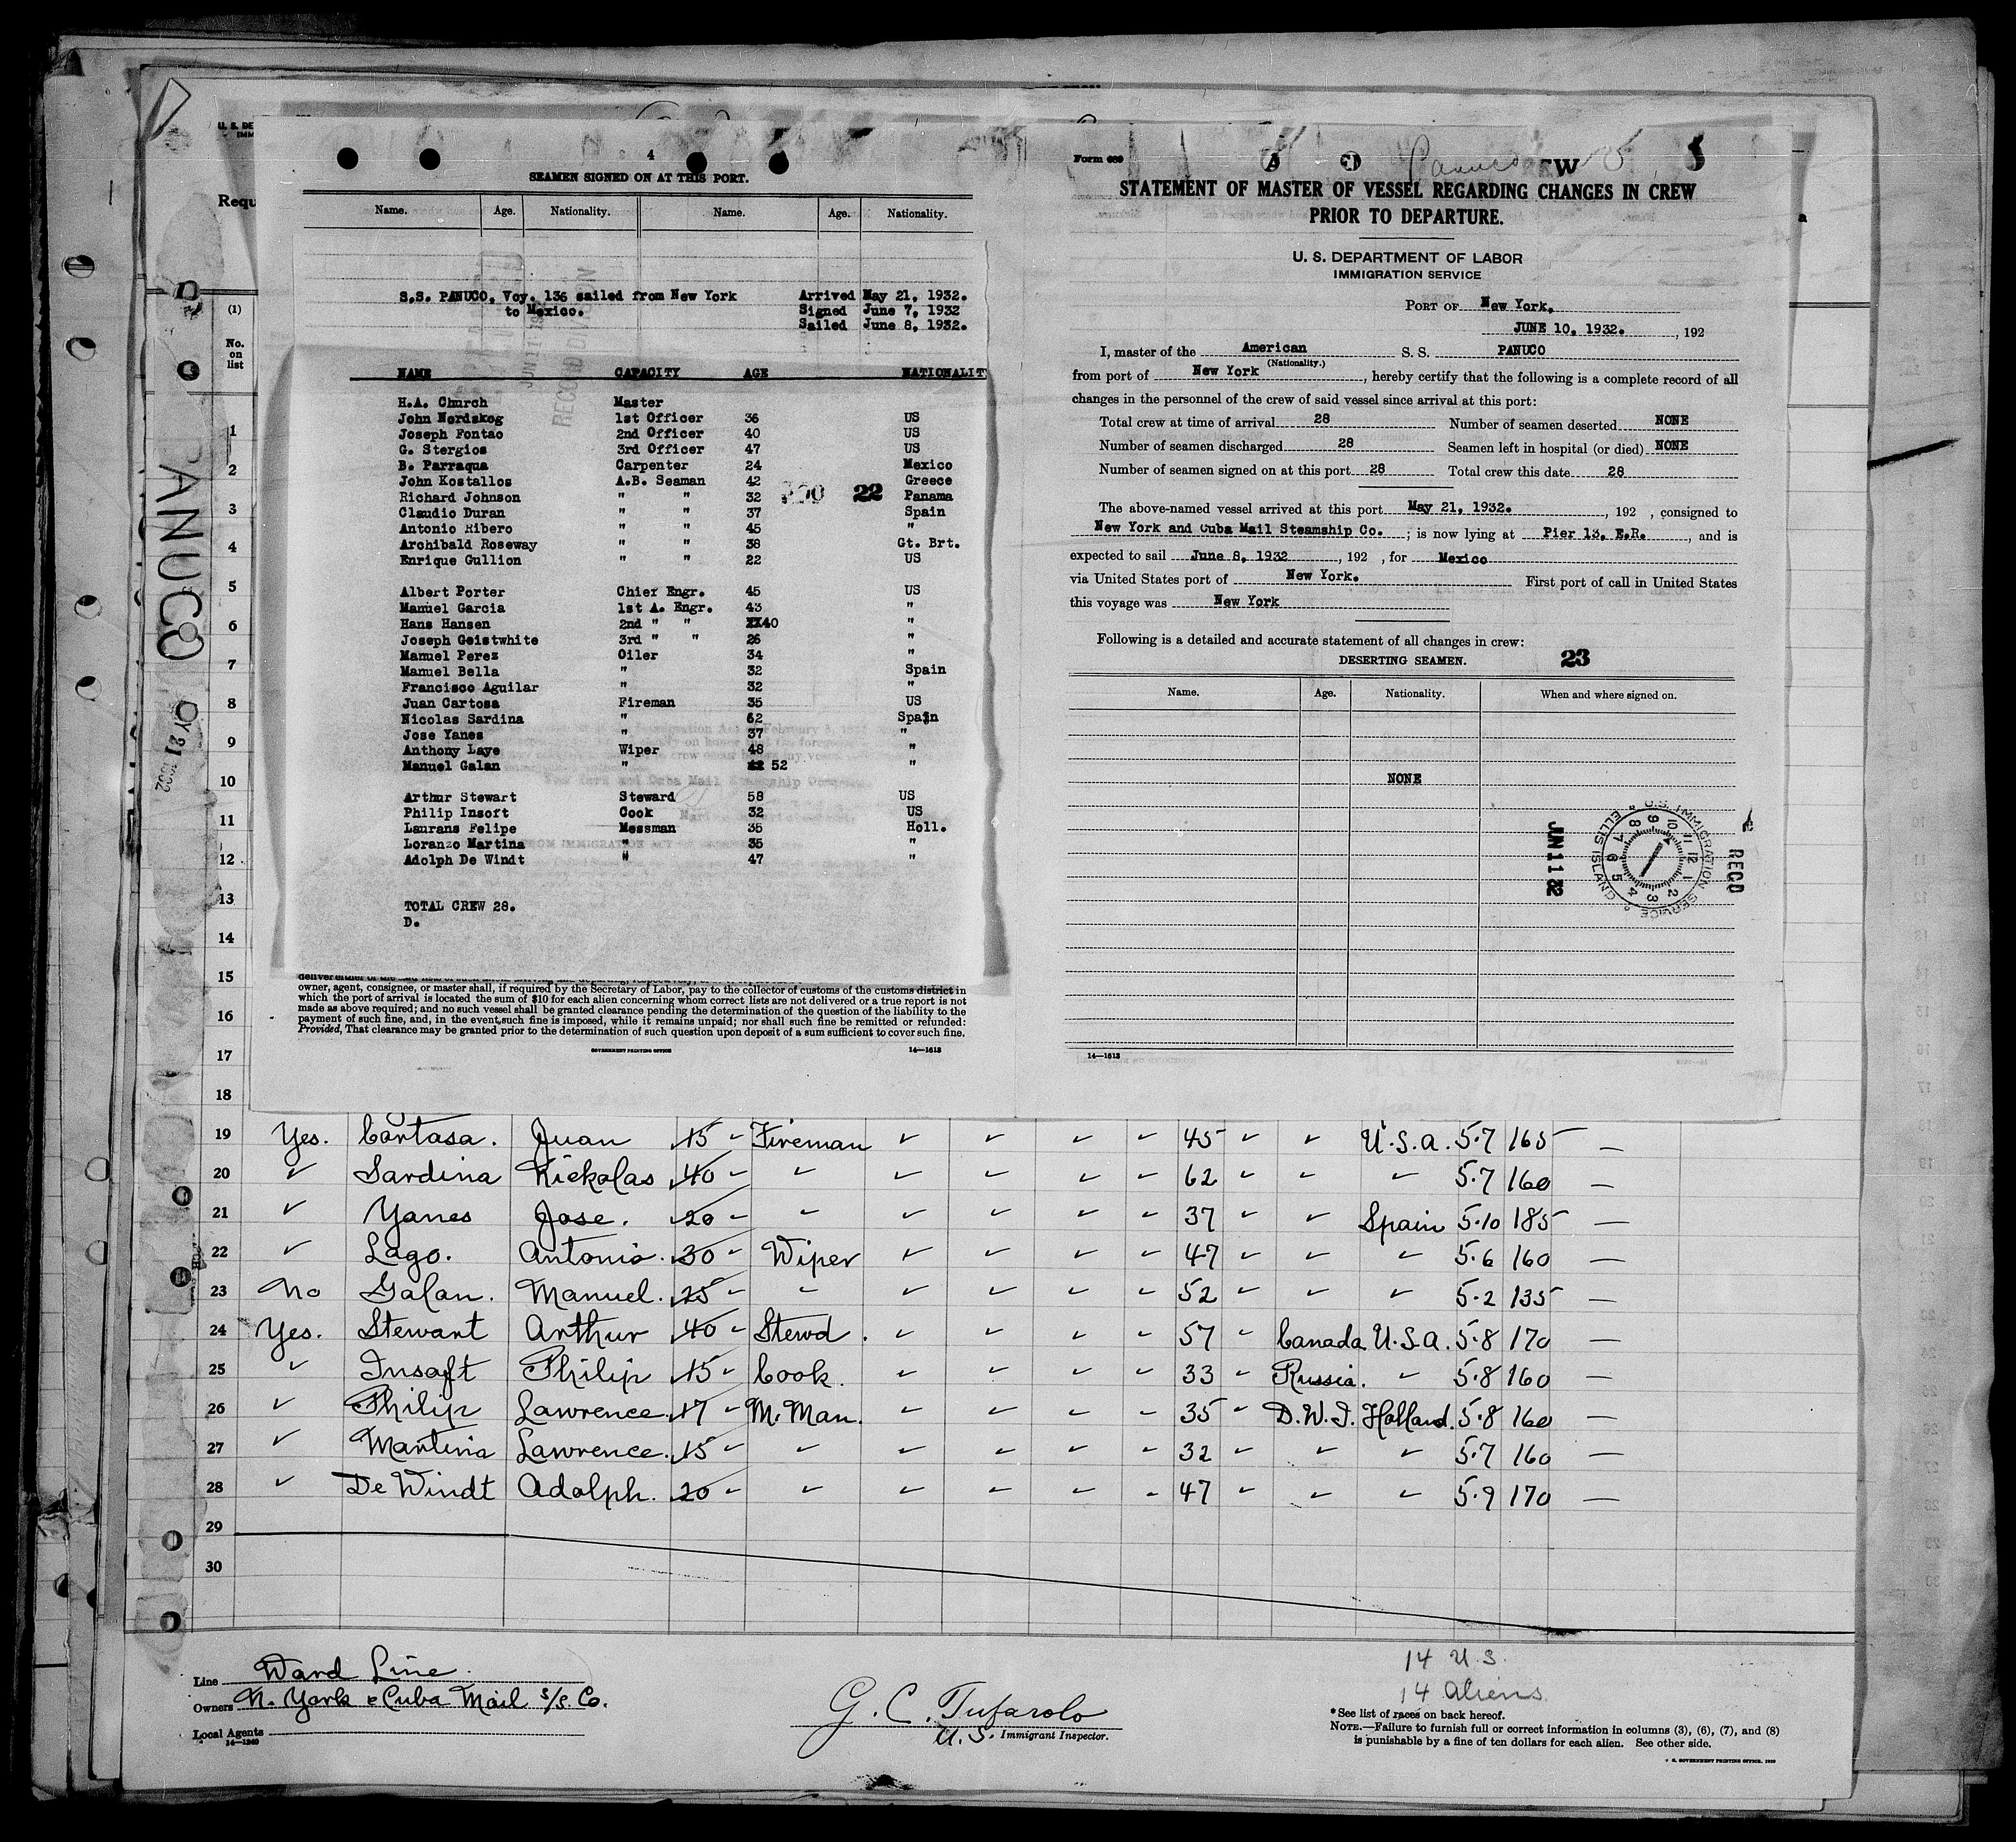 U. S. DE
IMM
Requ
(1)
No.
on
list
PANUCO
4
SEAMEN SIGNED ON AT THIS PORT.
Name. Age. Nationality. Name. Age. Nationality.
S.S. PANUCO, Voy. 136 sailed from New York Arrived May 21, 1932.
to Mexico. Signed June 7, 1932
Sailed June 8, 1932.
NAME CAPACITY AGE NATIONALIT
H.A. Church Master
John Nordskog 1st Officer 36 US
Joseph Fontao 2nd Officer 40 US
G. Stergios 3rd Officer 47 US
B. Parraqua Carpenter 24 Mexico
John Kostallos A.B. Seaman 42 Greece
Richard Johnson " " 32 22 Panama
Claudio Duran " " 37 Spain
Antonio Ribero " " 45 "
Archibald Roseway " " 38 Gt. Brt.
Enrique Gullion " " 22 US
Albert Porter Chief Engr. 45 US
Manuel Garcia 1st A. Engr. 43 "
Hans Hansen 2nd " " 40 "
Joseph Geistwhite 3rd " " 26 "
Manuel Perez Oiler 34 "
Manuel Bella " 32 Spain
Francisco Aguilar " 32 "
Juan Cartosa Fireman 35 US
Nicolas Sardina " 62 Spain
Jose Yanes " 37 "
Anthony Laye Wiper 48 "
Manuel Galan " 52 "
Arthur Stewart Steward 58 US
Philip Insoft Cook 32 US
Laurans Felipe Messman 35 Holl.
Loranzo Martina " 35 "
Adolph De Windt " 47 "
TOTAL CREW 28.
D.
owner, agent, consignee, or master shall, if required by the Secretary of Labor, pay to the collector of customs of the customs district in
which the port of arrival is located the sum of $10 for each alien concerning whom correct lists are not delivered or a true report is not
made as above required; and no such vessel shall be granted clearance pending the determination of the question of the liability to the
payment of such fine, and, in the event such fine is imposed, while it remains unpaid; nor shall such fine be remitted or refunded:
Provided, That clearance may be granted prior to the determination of such question upon deposit of a sum sufficient to cover such fine.
GOVERNMENT PRINTING OFFICE 14—1613
Form 689
Panuco
STATEMENT OF MASTER OF VESSEL REGARDING CHANGES IN CREW
PRIOR TO DEPARTURE.
U. S. DEPARTMENT OF LABOR
IMMIGRATION SERVICE
PORT OF New York.
JUNE 10, 1932. , 192
I, master of the American S. S. PANUCO
(Nationality.)
from port of New York , hereby certify that the following is a complete record of all
changes in the personnel of the crew of said vessel since arrival at this port:
Total crew at time of arrival 28 Number of seamen deserted NONE
Number of seamen discharged 28 Seamen left in hospital (or died) NONE
Number of seamen signed on at this port 28 Total crew this date 28
The above-named vessel arrived at this port May 21, 1932. , 192 , consigned to
New York and Cuba Mail Steamship Co. ; is now lying at Pier 13, E.R. , and is
expected to sail June 8, 1932 , 192 , for Mexico
via United States port of New York. First port of call in United States
this voyage was New York
Following is a detailed and accurate statement of all changes in crew:
DESERTING SEAMEN. 23
Name. Age. Nationality. When and where signed on.
NONE
U.S. IMMIGRATION SERVICE ELLIS ISLAND
JUN 11 32
RECD
14—1613
1
2
3
4
5
6
7
8
9
10
11
12
13
14
15
16
17
18
19 Yes. Cortasa. Juan 15 " Fireman ✓ ✓ ✓ ✓ 45 ✓ ✓ U.S.A. 5.7 165 —
20 ✓ Sardina Nickolas 40 " ✓ ✓ ✓ ✓ ✓ 62 ✓ ✓ ✓ 5.7 160 —
21 ✓ Yanes Jose. 20 " ✓ ✓ ✓ ✓ ✓ 37 ✓ ✓ Spain 5.10 185 —
22 ✓ Lago. Antonio. 30 " Wiper ✓ ✓ ✓ ✓ 47 ✓ ✓ ✓ 5.6 160 —
23 No Galan. Manuel. 25 " ✓ ✓ ✓ ✓ ✓ 52 ✓ ✓ ✓ 5.2 135 —
24 Yes. Stewart Arthur 40 " Stewd. ✓ ✓ ✓ ✓ 57 ✓ Canada U.S.A. 5.8 170 —
25 ✓ Insoft Philip 15 " Cook. ✓ ✓ ✓ ✓ 33 ✓ Russia. ✓ 5.8 160 —
26 ✓ Philip Lawrence. 17 " M. Man. ✓ ✓ ✓ ✓ 35 ✓ D.W.I. Holland. 5.8 160 —
27 ✓ Martina Lawrence. 15 " ✓ ✓ ✓ ✓ ✓ 32 ✓ ✓ ✓ 5.7 160 —
28 ✓ De Windt Adolph. 20 " ✓ ✓ ✓ ✓ ✓ 47 ✓ ✓ ✓ 5.9 170 —
29
30
14 U.S.
14 aliens
Line Ward Line.
Owners N. York & Cuba Mail S/S. Co.
Local Agents
14—1240
G. C. Tufarolo
U.S. Immigrant Inspector.
*See list of races on back hereof.
NOTE.—Failure to furnish full or correct information in columns (3), (6), (7), and (8)
is punishable by a fine of ten dollars for each alien. See other side.